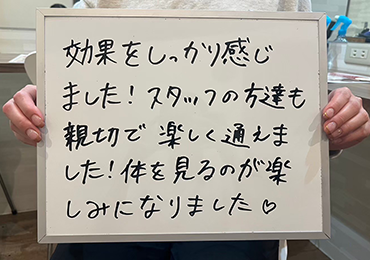 効果をしっかり感じ
ました！スタッフの方達も
親切で楽しく通えま
した！体を見るのが楽
しみになりました♡